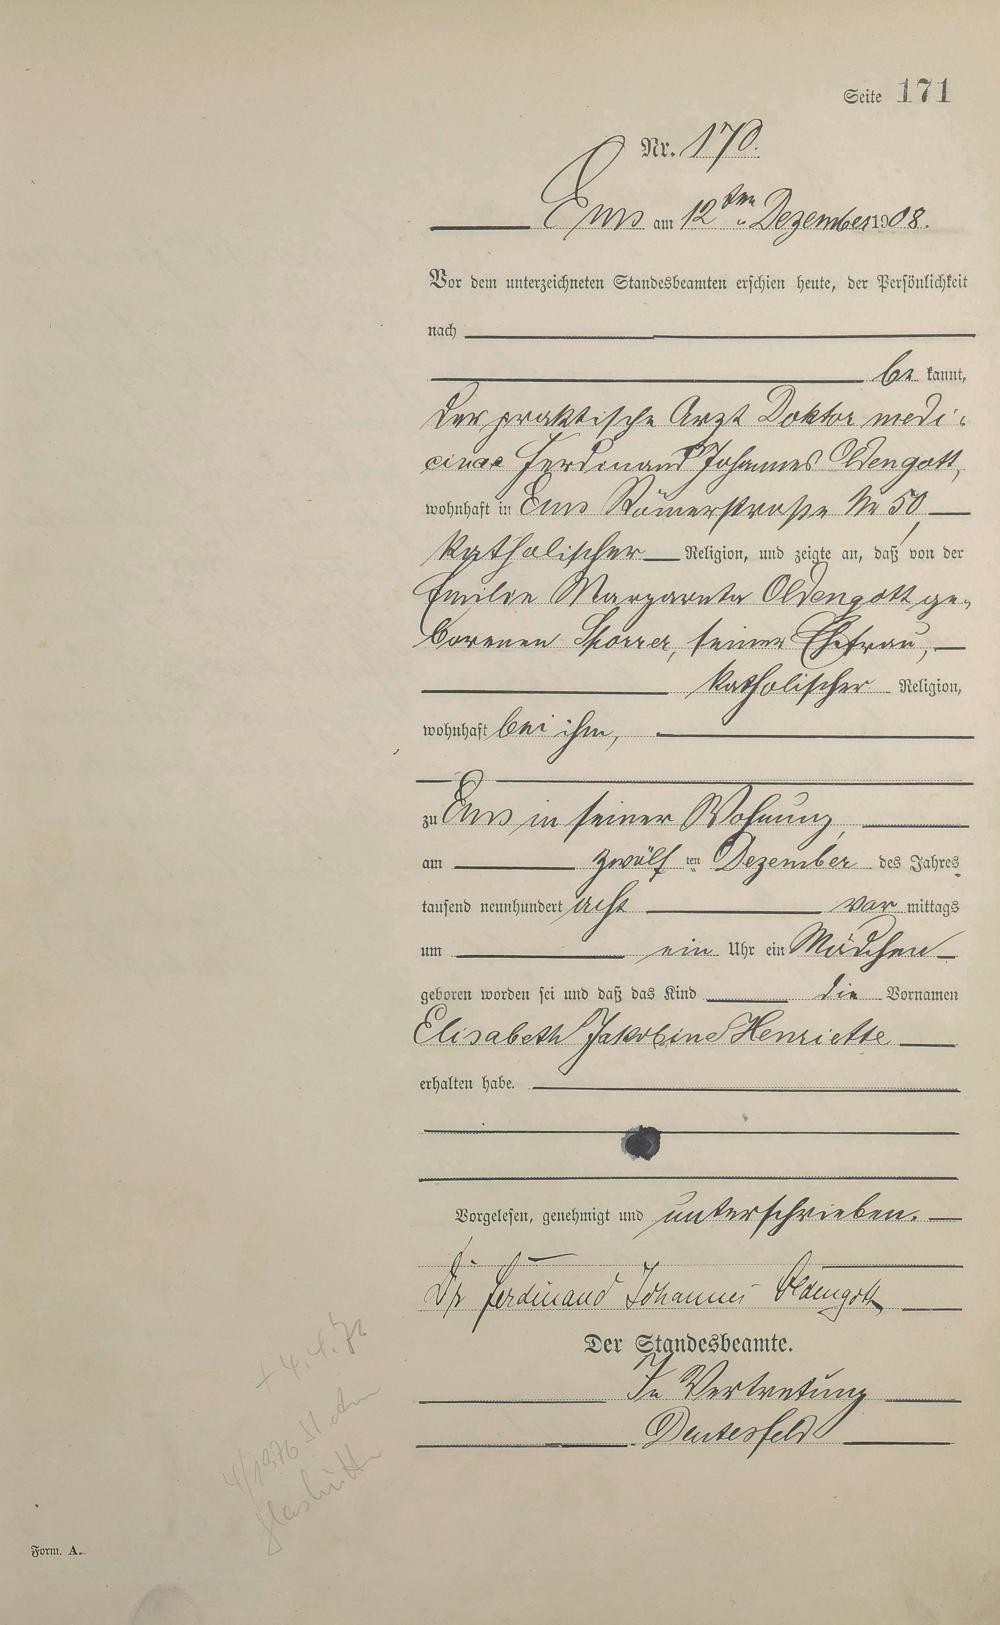 Seite 171
Nr. 170.
Ems am 12ten Dezember 1908.
Vor dem unterzeichneten Standesbeamten erschien heute, der Persönlichkeit
nach
be kannt,
der praktische Arzt Doktor medi-
cinae Ferdinand Johannes Oldengott,
wohnhaft in Ems Römerstraße No 50,
katholischer Religion, und zeigte an, daß von der
Emilie Margareta Oldengott ge-
borenen Sporrer, seiner Ehefrau,
katholischer Religion,
wohnhaft bei ihm,
zu Ems in seiner Wohnung,
am zwölf ten Dezember des Jahres
tausend neunhundert acht vor mittags
um ein Uhr ein Mädchen
geboren worden sei und daß das Kind die Vornamen
Elisabeth Jakobine Henriette
erhalten habe.
Vorgelesen, genehmigt und unterschrieben.
Dr Ferdinand Johannes Oldengott
Der Standesbeamte.
In Vertretung
Deutesfeld
4/1976
Form. A.